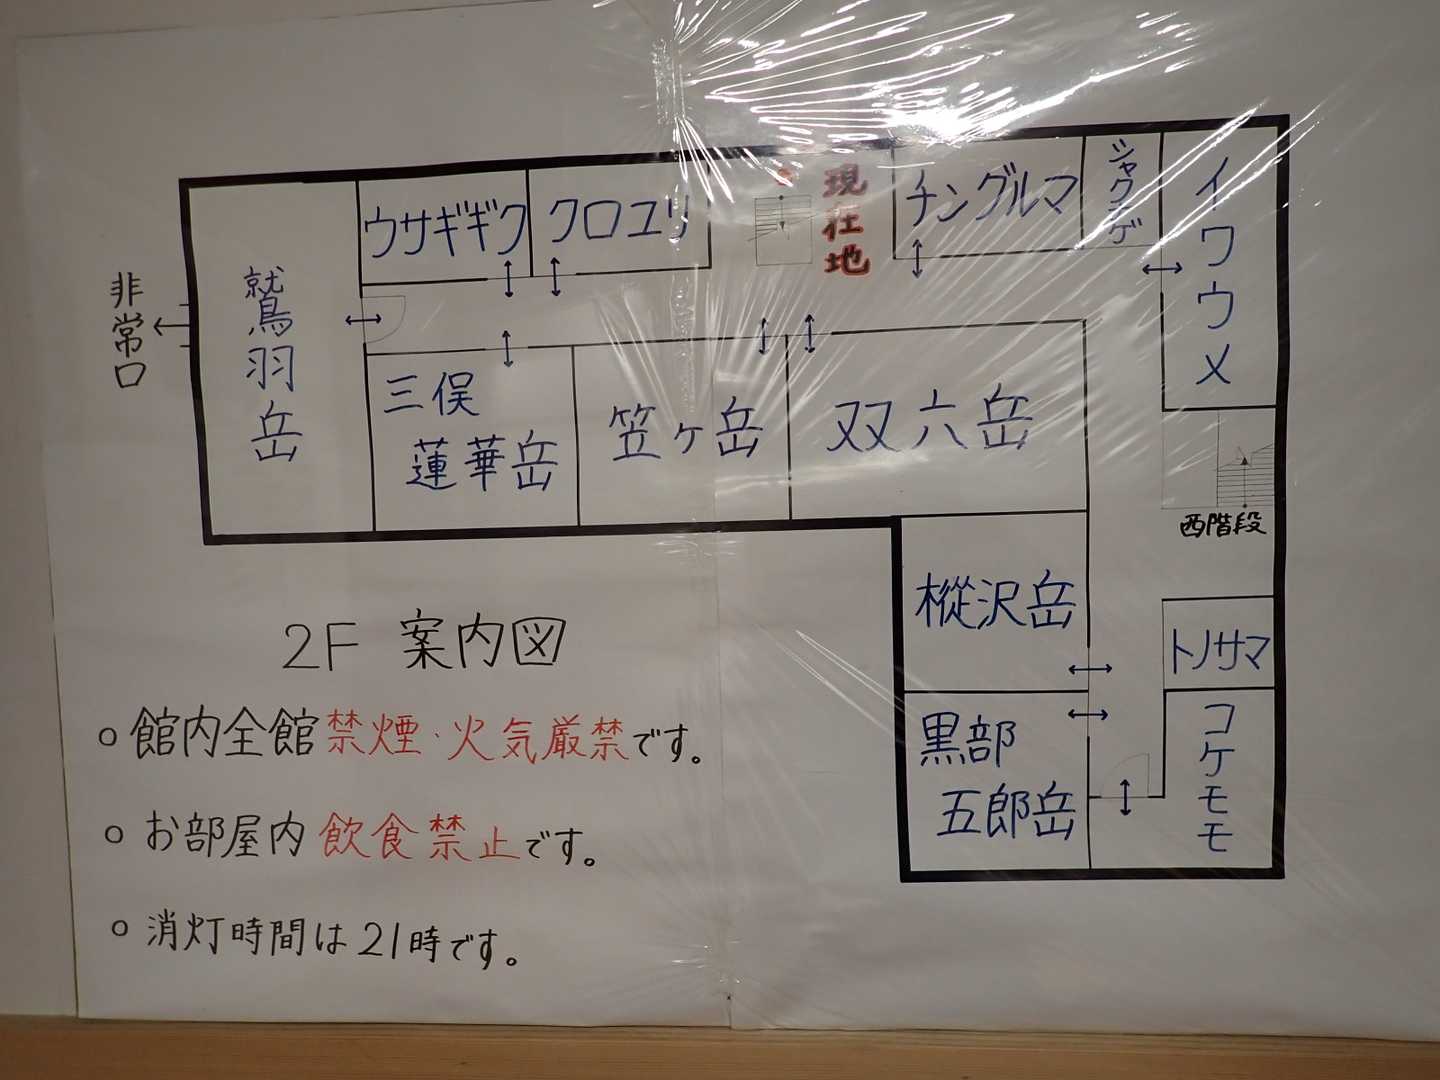 現在地
チングルマ
シャクナゲ
イワウメ
ウサギギク
クロユリ
非常口
鷲羽岳
三俣
蓮華岳
笠ヶ岳
双六岳
西階段
樅沢岳
トノサマ
黒部
五郎岳
コケモモ
2F 案内図
○館内全館禁煙・火気厳禁です。
○お部屋内飲食禁止です。
○消灯時間は21時です。